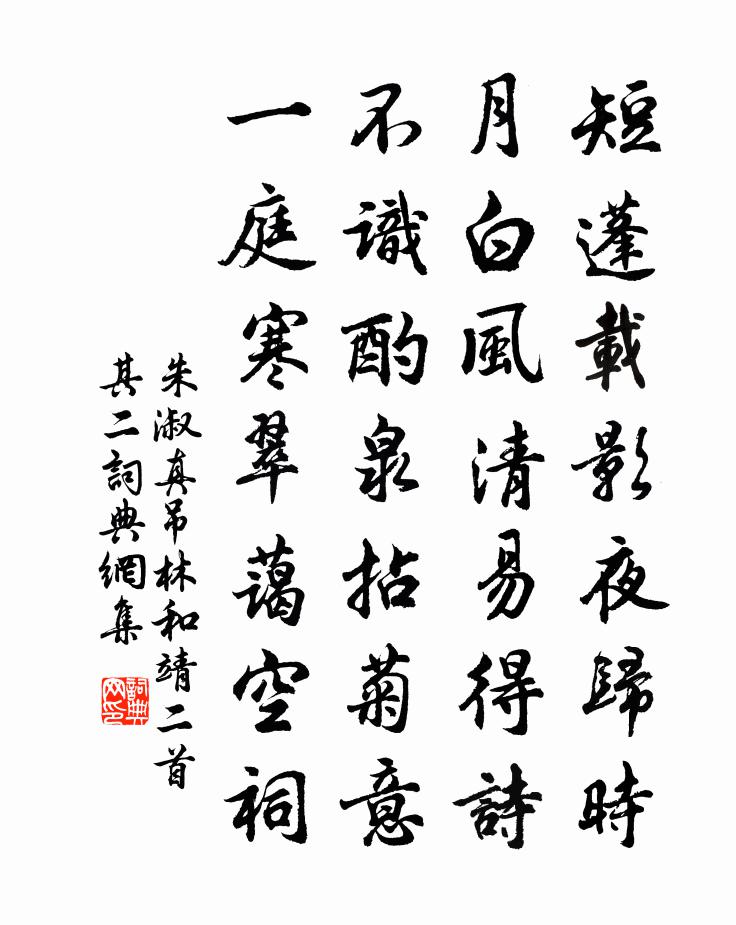 短蓬載影夜歸時
月白風清易得詩
不識酌泉拈菊意
一庭寒翠藹空祠
朱淑真吊林和靖二首
其二詞典網集
詞典网印